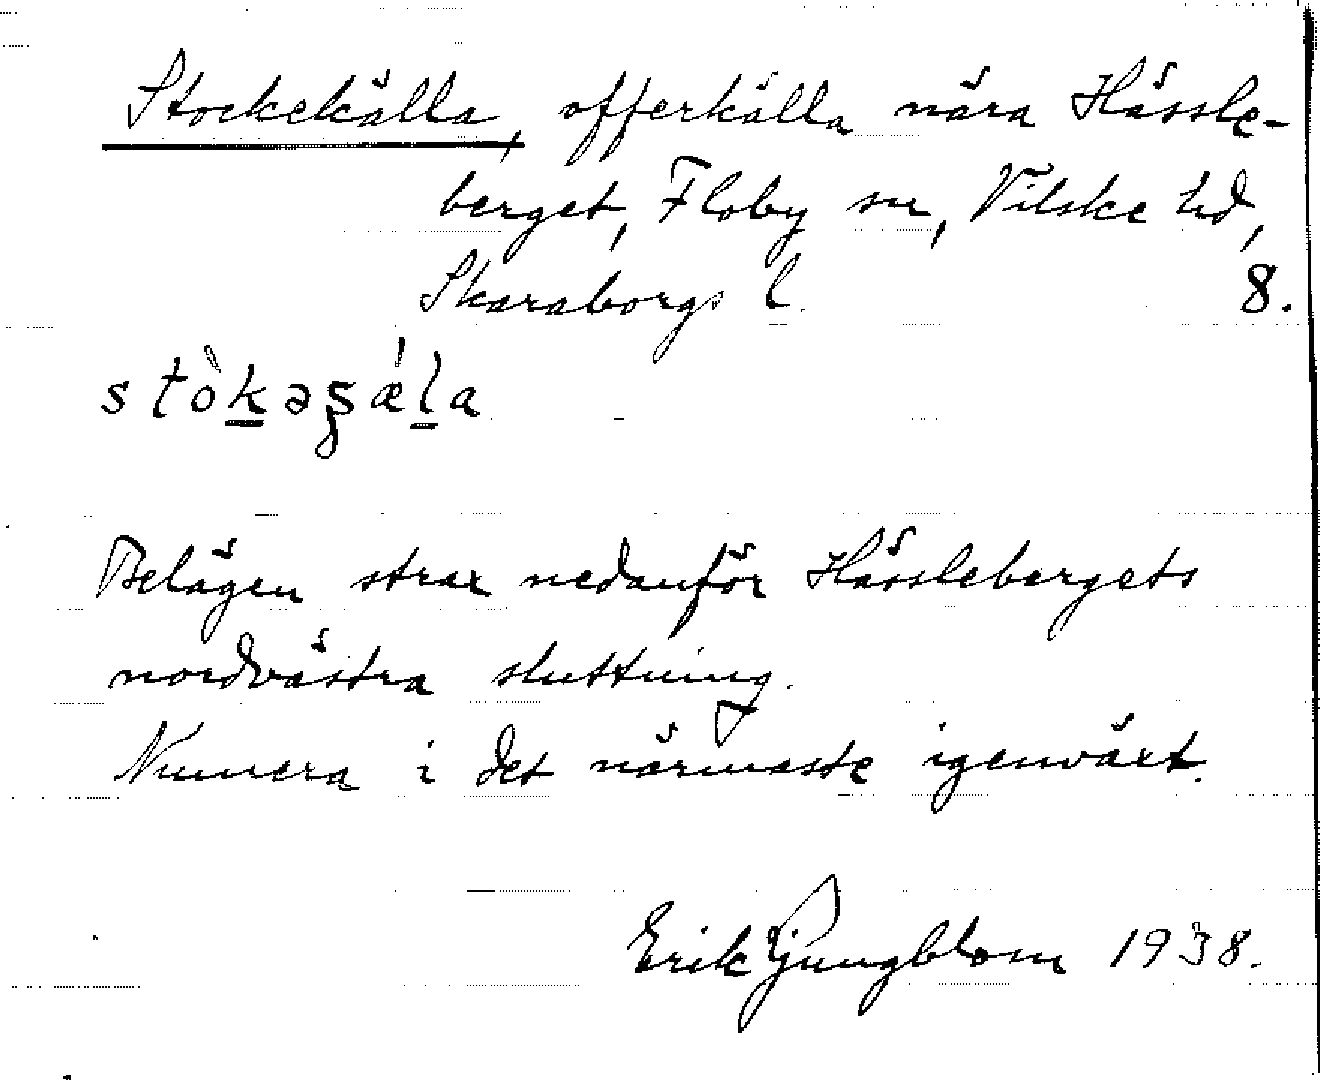 Stockekälla, offerkälla nära Hässle-
berget, Floby sn, Vilske hd,
Skaraborgs l. 8.
stòkəʂǽla
Belägen strax nedanför Hässlebergets
nordvästra sluttning.
Numera i det närmaste igenväxt.
Erik Ljungblom 1938.